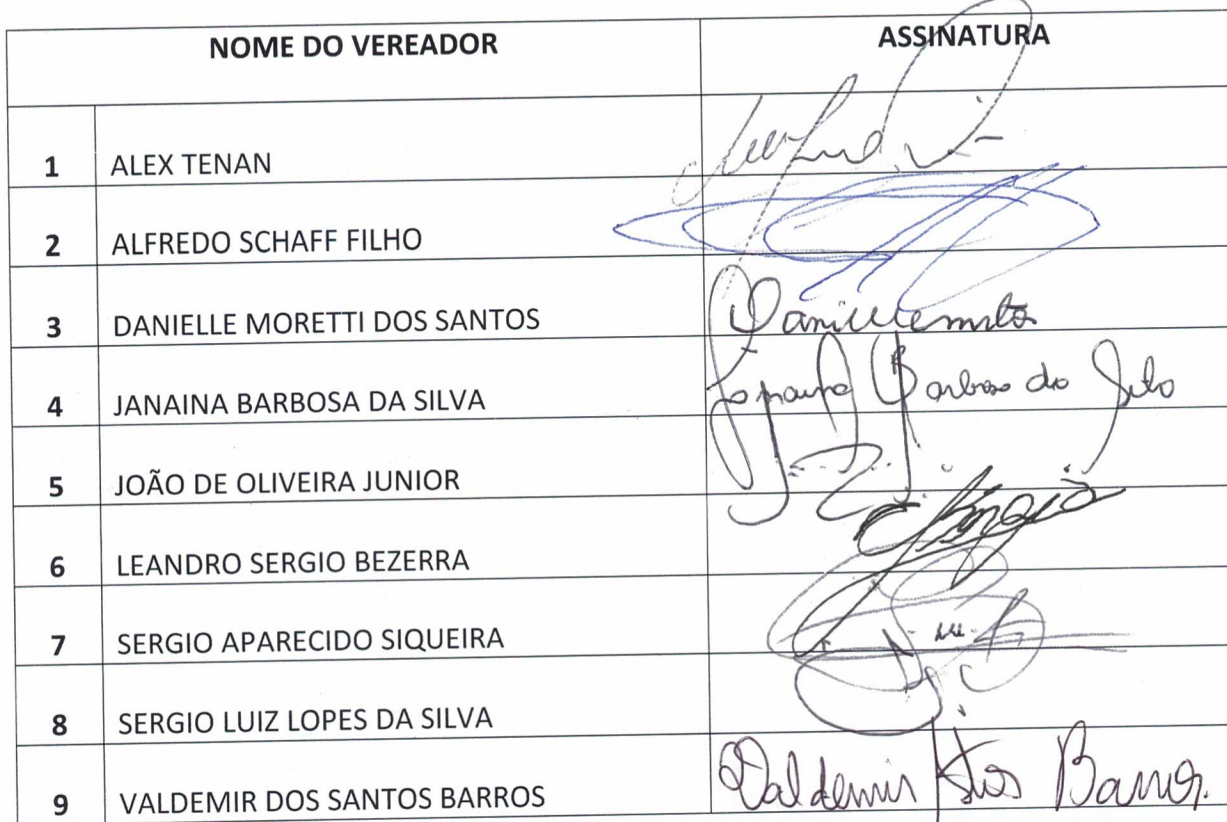 NOME DO VEREADOR ASSINATURA
1 ALEX TENAN
2 ALFREDO SCHAFF FILHO
3 DANIELLE MORETTI DOS SANTOS
4 JANAINA BARBOSA DA SILVA Barbosa da Silva
5 JOÃO DE OLIVEIRA JUNIOR
6 LEANDRO SERGIO BEZERRA
7 SERGIO APARECIDO SIQUEIRA
8 SERGIO LUIZ LOPES DA SILVA
9 VALDEMIR DOS SANTOS BARROS Valdemir Stos Barros